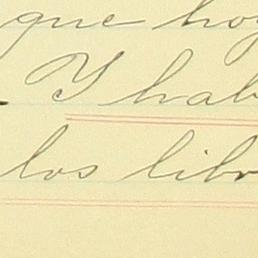 que hoy
Y hab
los libr